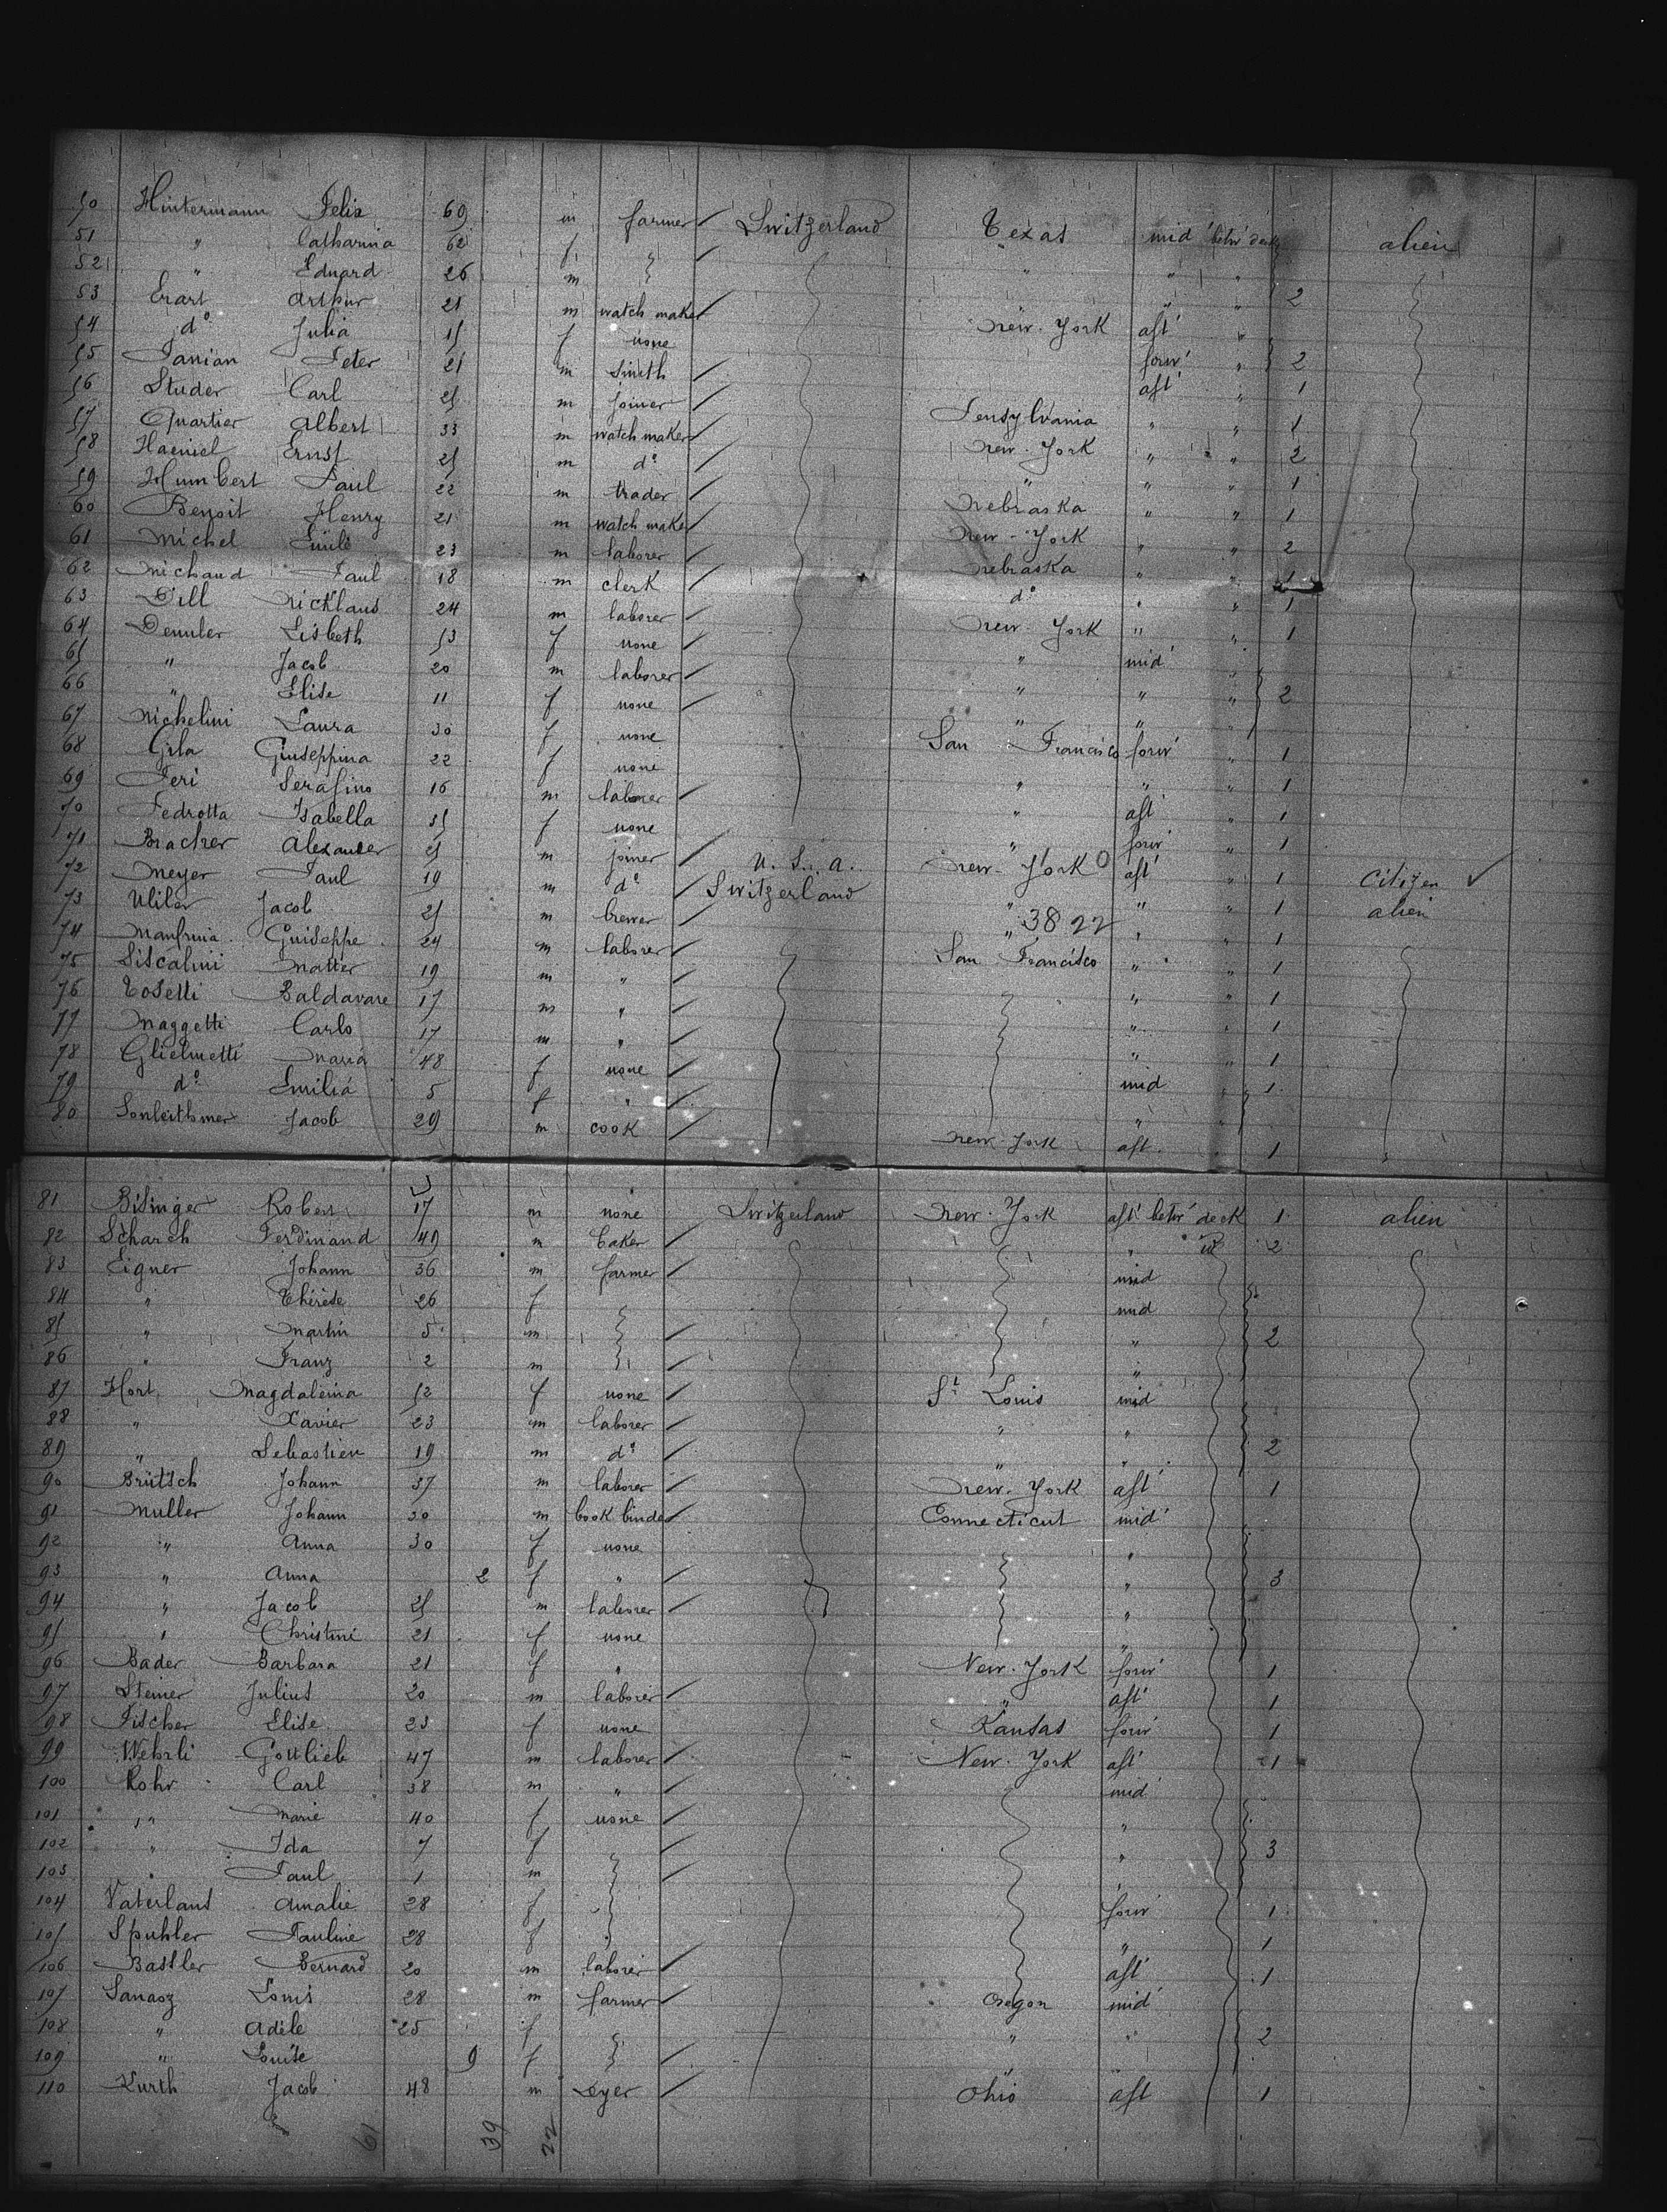 50 Hintermann Felix 69 m farmer Switzerland Texas mid' betw' deck alien
51 " Catharina 62 f
52 " Eduard 26 m " " "
53 Erart Arthur 25 m watch maker " " 2
54 d° Julia 15 f none New-York aft' "
55 Panian Peter 21 m smith forw' " 2
56 Studer Carl 25 m joiner aft' " 1
57 Quartier Albert 33 m watch maker Pensylvania " " 1
58 Haeniel Ernst 25 m d° New-York " " 2
59 Humbert Paul 22 m trader " " " 1
60 Benoit Henry 21 m watch maker Nebraska " " 1
61 Michel Emile 23 m laborer New-York " " 2
62 Michaud Paul 18 m clerk Nebraska " " 1
63 Dill Nicklaus 24 m laborer d° " " 1
64 Demuler Lisbeth 53 f none New-York " " 1
65 " Jacob 20 m laborer " mid'
66 " Elise 11 f none " " " 2
67 Michelini Laura 30 f none " "
68 Grla Giuseppina 22 f none San Francisco forw' " 1
69 Peri Serafino 16 m laborer " " " 1
70 Pedrotta Isabella 35 f none " aft' " 1
71 Bracher Alexander 25 m joiner U.S.A. " forw' " 1
72 Meyer Paul 19 m d° Switzerland New-York O aft' " 1 Citizen ✓
73 Jacob 25 m brewer " " " 1 alien
74 Guiseppe 24 m laborer " 3822 " " 1
75 Siscalini Matter 19 m " San Francisco " " 1
76 Tosetti Baldavare 17 m " " " 1
77 Maggetti Carlo 17 m " " " 1
78 Glielmetti Maria 48 f none " " 1
79 d° Emilia 5 f " mid " 1
80 Jacob 29 m cook "
New-York aft. 1
81 Bisinger Robert 17 m none Switzerland New-York aft' betw' deck 1 alien
82 Scharch Ferdinand 49 m baker " " 2
83 Eigner Johann 36 m farmer mid
84 " Thérèse 26 f mid
85 " Martin 5 m " 2
86 " Franz 2 m "
87 Hort Magdaleina 52 f none St Louis mid
88 " Xavier 23 m laborer " "
89 " Sebastien 19 m d° " " 2
90 Brütsch Johann 37 m laborer New-York aft' 1
91 Muller Johann 30 m book binder Connecticut mid'
92 " Anna 30 f none "
93 " Anna 2 f " " 3
94 " Jacob 25 m laborer "
95 " Christine 21 f none "
96 Bader Barbara 21 f " New-York forw' 1
97 Steiner Julius 20 m laborer " aft' 1
98 Fischer Elise 23 f none Kansas forw' 1
99 Wehrli Gottlieb 47 m laborer New-York aft' 1
100 Rohr Carl 38 m " mid'
101 " Marie 40 f none "
102 " Ida 7 f " 3
103 " Paul 1 m
104 Vaterlaus Amalie 28 f forw' 1
105 Spuhler Pauline 28 f " 1
106 Bassler Bernard 20 m laborer aft' 1
107 Sanaoz Louis 28 m farmer Oregon mid'
108 " Adèle 25 f " " 2
109 " Louise 9 f
110 Kurth Jacob 48 m dyer Ohio aft 1
61 39 22